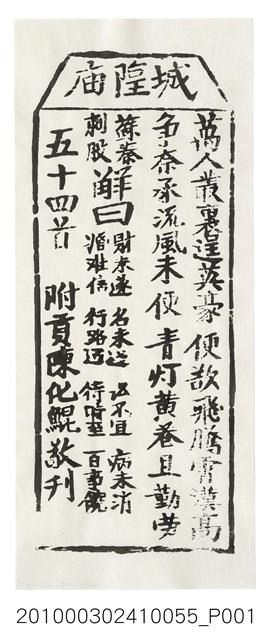 城隍庙
萬人叢裏逞英豪 便欲飛騰霄漢高
爭奈承流風未便 青灯黄卷且勤勞
蘇秦刺股
解曰
財未遂 名未 不宜 病未消
婚难信 行路遥 待時至 百事饒
五十四首 附貢陳化鯤敬刊
201000302410055_P001